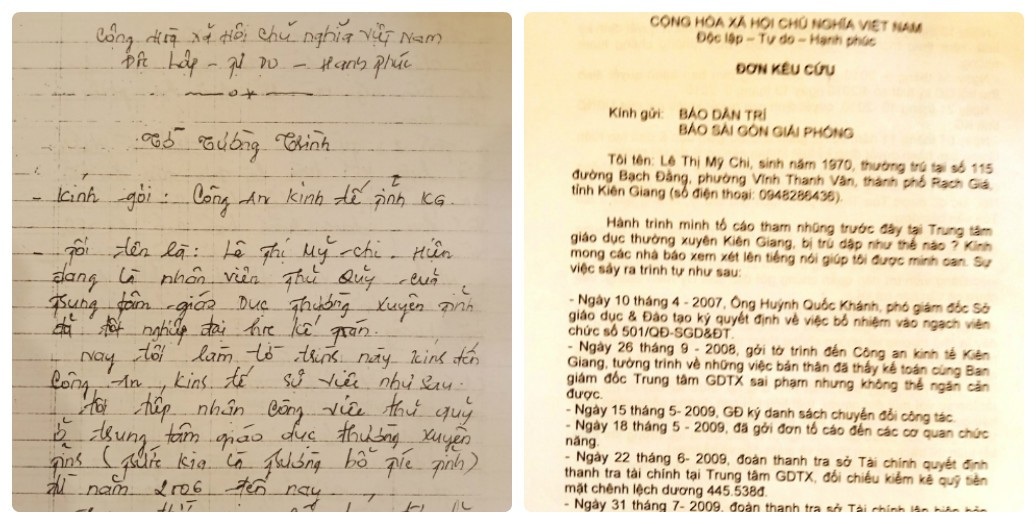 Cộng Hoà Xã Hội Chủ nghĩa Việt Nam
Độc Lập - Tự Do - Hạnh phúc
Tờ Tường Trình
- Kính gởi: Công An kinh tế tỉnh KG.
- Tôi tên là: Lê Thị Mỹ-Chi. Hiện
đang là nhân viên Thủ Quỹ của
Trung tâm giáo Dục Thường Xuyên tỉnh
đã tốt nghiệp đại học kế toán.
Nay tôi làm tờ trình này kính đến
Công An kinh tế sự việc như sau.
Tôi tiếp nhận Công việc thủ quỹ
ở trung tâm giáo dục thường xuyên
tỉnh (trước kia là trường bổ túc tỉnh)
từ năm 2006 đến nay.
CỘNG HÒA XÃ HỘI CHỦ NGHĨA VIỆT NAM
Độc lập – Tự do – Hạnh phúc
ĐƠN KÊU CỨU
Kính gửi: BÁO DÂN TRÍ
BÁO SÀI GÒN GIẢI PHÓNG
Tôi tên: Lê Thị Mỹ Chi, sinh năm 1970, thường trú tại số 115
đường Bạch Đằng, phường Vĩnh Thanh Vân, thành phố Rạch Giá,
tỉnh Kiên Giang (số điện thoại: 0948286436).
Hành trình mình tố cáo tham nhũng trước đây tại Trung tâm
giáo dục thường xuyên Kiên Giang, bị trù dập như thế nào ? Kính
mong các nhà báo xem xét lên tiếng nói giúp tôi được minh oan. Sự
việc sẩy ra trình tự như sau:
- Ngày 10 tháng 4 - 2007, Ông Huỳnh Quốc Khánh, phó giám đốc Sở
giáo dục & Đào tạo ký quyết định về việc bổ nhiệm vào ngạch viên
chức số 501/QĐ-SGD&ĐT.
- Ngày 26 tháng 9 - 2008, gởi tờ trình đến Công an kinh tế Kiên
Giang, tường trình về những việc bản thân đã thấy kế toán cùng Ban
giám đốc Trung tâm GDTX sai phạm nhưng không thể ngăn cản
được.
- Ngày 15 tháng 5- 2009, GĐ ký danh sách chuyển đổi công tác.
- Ngày 18 tháng 5 - 2009, đã gởi đơn tố cáo đến các cơ quan chức
năng.
- Ngày 22 tháng 6- 2009, đoàn thanh tra sở Tài chính quyết định
thanh tra tài chính tại Trung tâm GDTX, đối chiếu kiểm kê quỹ tiền
mặt chênh lệch dương 445.538đ.
- Ngày 31 tháng 7- 2009, đoàn thanh tra sở Tài chính lập biên bản